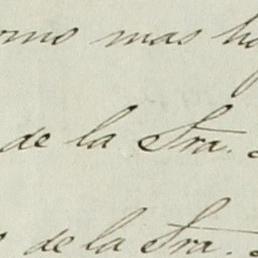 como mas ha
de la Sra.
de la Sra.